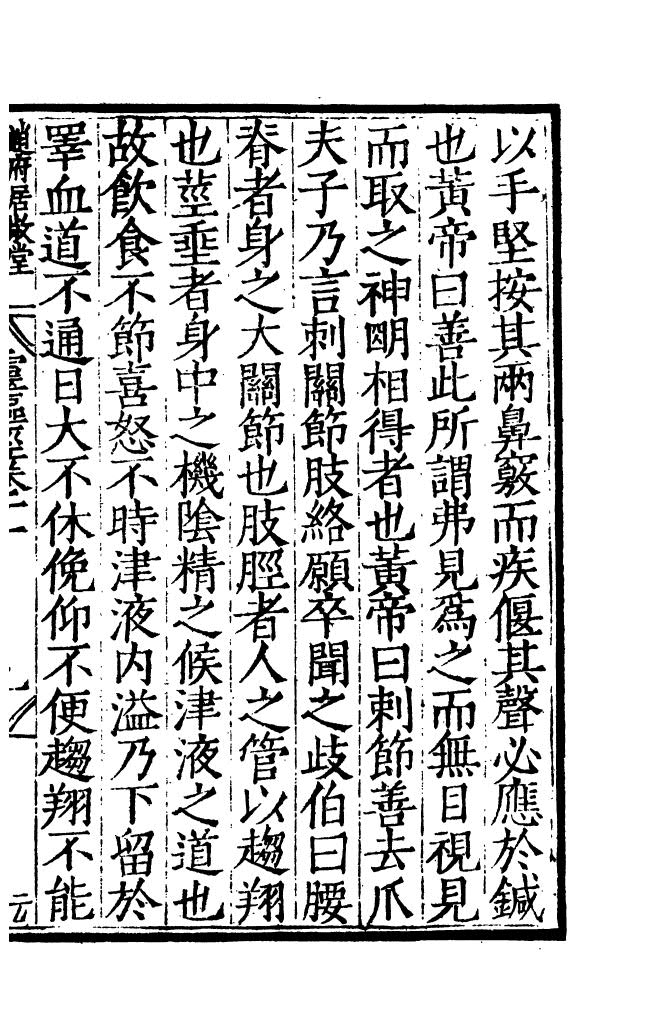 以手堅按其兩鼻竅而疾偃其聲必應於鍼
也黃帝曰善此所謂弗見爲之而無目視見
而取之神明相得者也黃帝曰刺節善去爪
夫子乃言刺關節肢絡願卒聞之歧伯曰腰
脊者身之大關節也肢脛者人之管以趨翔
也莖垂者身中之機陰精之候津液之道也
故飲食不節喜怒不時津液内溢乃下留於
睪血道不通日大不休俛仰不便趨翔不能
趙府居敬堂